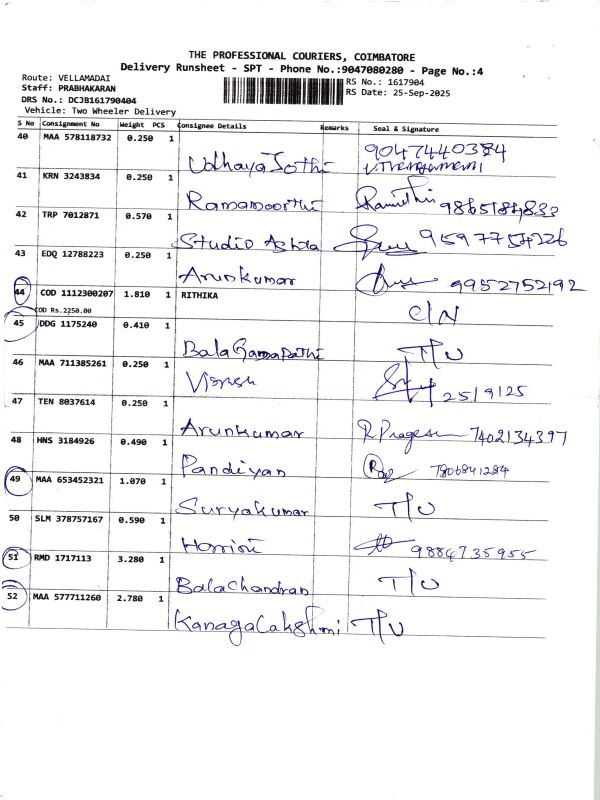 THE PROFESSIONAL COURIERS, COIMBATORE
Delivery Runsheet - SPT - Phone No.:9047080280 - Page No.:4
Route: VELLAMADAI RS No.: 1617904
Staff: PRABHAKARAN RS Date: 25-Sep-2025
DRS No.: DCJB161790404
Vehicle: Two Wheeler Delivery
S No Consignment No Weight PCS Consignee Details Remarks Seal & Signature
40 MAA 578118732 0.250 1 9047440384
Udhaya Jothi
41 KRN 3243834 0.250 1
Ramamoorthi
42 TRP 7012871 0.570 1
Studio 9597754226
43 EDQ 12788223 0.250 1
Arunkumar 9952752192
44 COD 1112300207 1.810 1 RITHIKA
COD Rs.2250.00 C/N
45 DDG 1175240 0.410 1
BalaGanapathi T/U
46 MAA 711385261 0.250 1
25/9/25
47 TEN 8037614 0.250 1
Arunkumar 7402134397
48 HNS 3184926 0.490 1
Pandiyan
49 MAA 653452321 1.070 1
Suryakumar T/U
50 SLM 378757167 0.590 1
9884735955
51 RMD 1717113 3.280 1
BalaChandran T/U
52 MAA 577711260 2.780 1
KanagaLakshmi T/U